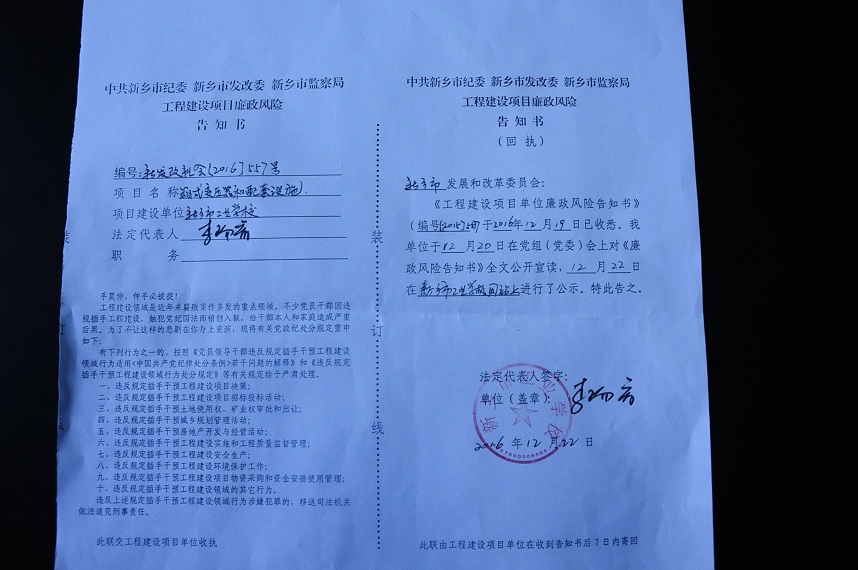 中共新乡市纪委 新乡市发改委 新乡市监察局
工程建设项目廉政风险
告知书
编号:新发改礼会[2016]557号
项目名称 箱式变压器和配套设施)
项目建设单位 新乡市工业学校
法定代表人
职务
手莫伸,伸手必被捉!
工程建设领域是近年来腐败案件多发的重点领域,不少党员干部因违
规插手工程建设,触犯党纪国法而锒铛入狱,给干部本人和家庭造成严重
后果。为了不让这样的悲剧在你身上重演,现将有关党政纪处分规定重申
如下:
有下列行为之一的,按照《党员领导干部违反规定插手干预工程建设
领域行为适用<中国共产党纪律处分条例>若干问题的解释》和《违反规定
插手干预工程建设领域行为处分规定》等有关规定给予严肃处理。
一、违反规定插手干预工程建设项目决策;
二、违反规定插手干预工程建设项目招标投标活动;
三、违反规定插手干预土地使用权、矿业权审批和出让;
四、违反规定插手干预城乡规划管理活动;
五、违反规定插手干预房地产开发与经营活动;
六、违反规定插手干预工程建设实施和工程质量监督管理;
七、违反规定插手干预工程建设安全生产;
八、违反规定插手干预工程建设环境保护工作;
九、违反规定插手干预工程建设项目物资采购和资金安排使用管理;
十、违反规定插手干预工程建设领域的其它行为。
违反上述规定插手干预工程建设领域行为涉嫌犯罪的,移送司法机关
依法追究刑事责任。
此联交工程建设项目单位收执
装
订
线
中共新乡市纪委 新乡市发改委 新乡市监察局
工程建设项目廉政风险
告知书
(回执)
新乡市 发展和改革委员会:
《工程建设项目单位廉政风险告知书》
(编号 )于2016年12月19日已收悉。我
单位于12月20日在党组(党委)会上对《廉
政风险告知书》全文公开宣读,12月22日
在新乡市工业学校网站上进行了公示。特此告之。
法定代表人签字:
单位(盖章):
2016年12月22日
此联由工程建设项目单位在收到告知书后7日内寄回